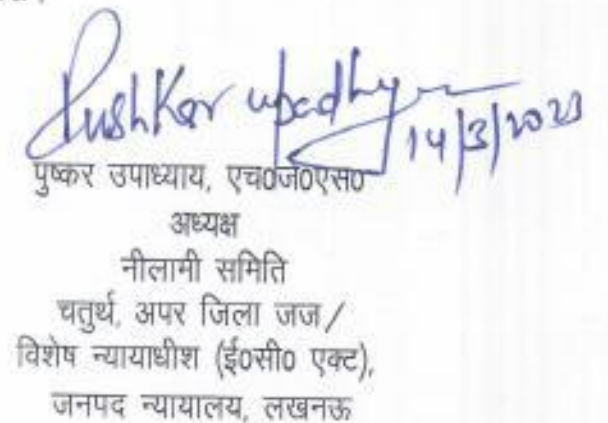 Pushkar upadhyay
14/3/2023
पुष्कर उपाध्याय, एच०जे०एस०
अध्यक्ष
नीलामी समिति
चतुर्थ, अपर जिला जज/
विशेष न्यायाधीश (ई०सी० एक्ट),
जनपद न्यायालय, लखनऊ